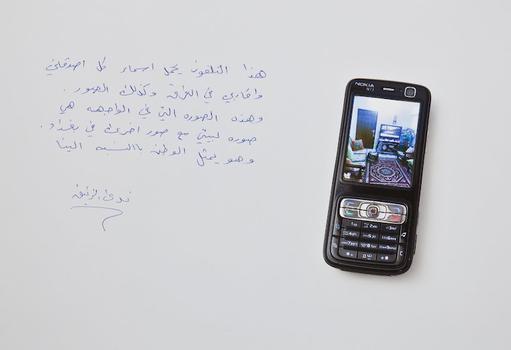 هذا التلفون يحمل اسماء كل اصدقائي
واقاربي في العراق وكذلك الصور.
وهذه الصوره التي في الواجهه هي
صوره لبيتي مع صور اخرى في بغداد.
وهو يمثل الوطن بالنسبه الينا
NOKIA
N73